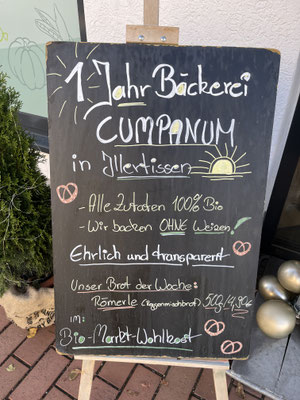 1 Jahr Bäckerei
CUMPANUM
in Illertissen
- Alle Zutaten 100% Bio
- Wir backen OHNE Weizen!
Ehrlich und transparent
Unser Brot der Woche:
Römerle (Roggenmischbrot) 500g/4,90€
im:
Bio-Markt-Wohlkost